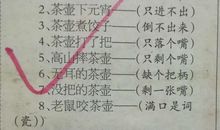 2.茶壶下元宵——(只进不出)
3.茶壶煮饺子——(倒不出来)
4.茶壶打了把——(只落个嘴)
5.高山摔茶壶——(只剩个嘴)
6.无耳的茶壶——(缺个把柄)
7.没把的茶壶——(剩一张嘴)
8.老鼠咬茶壶——(满口是词
(瓷))